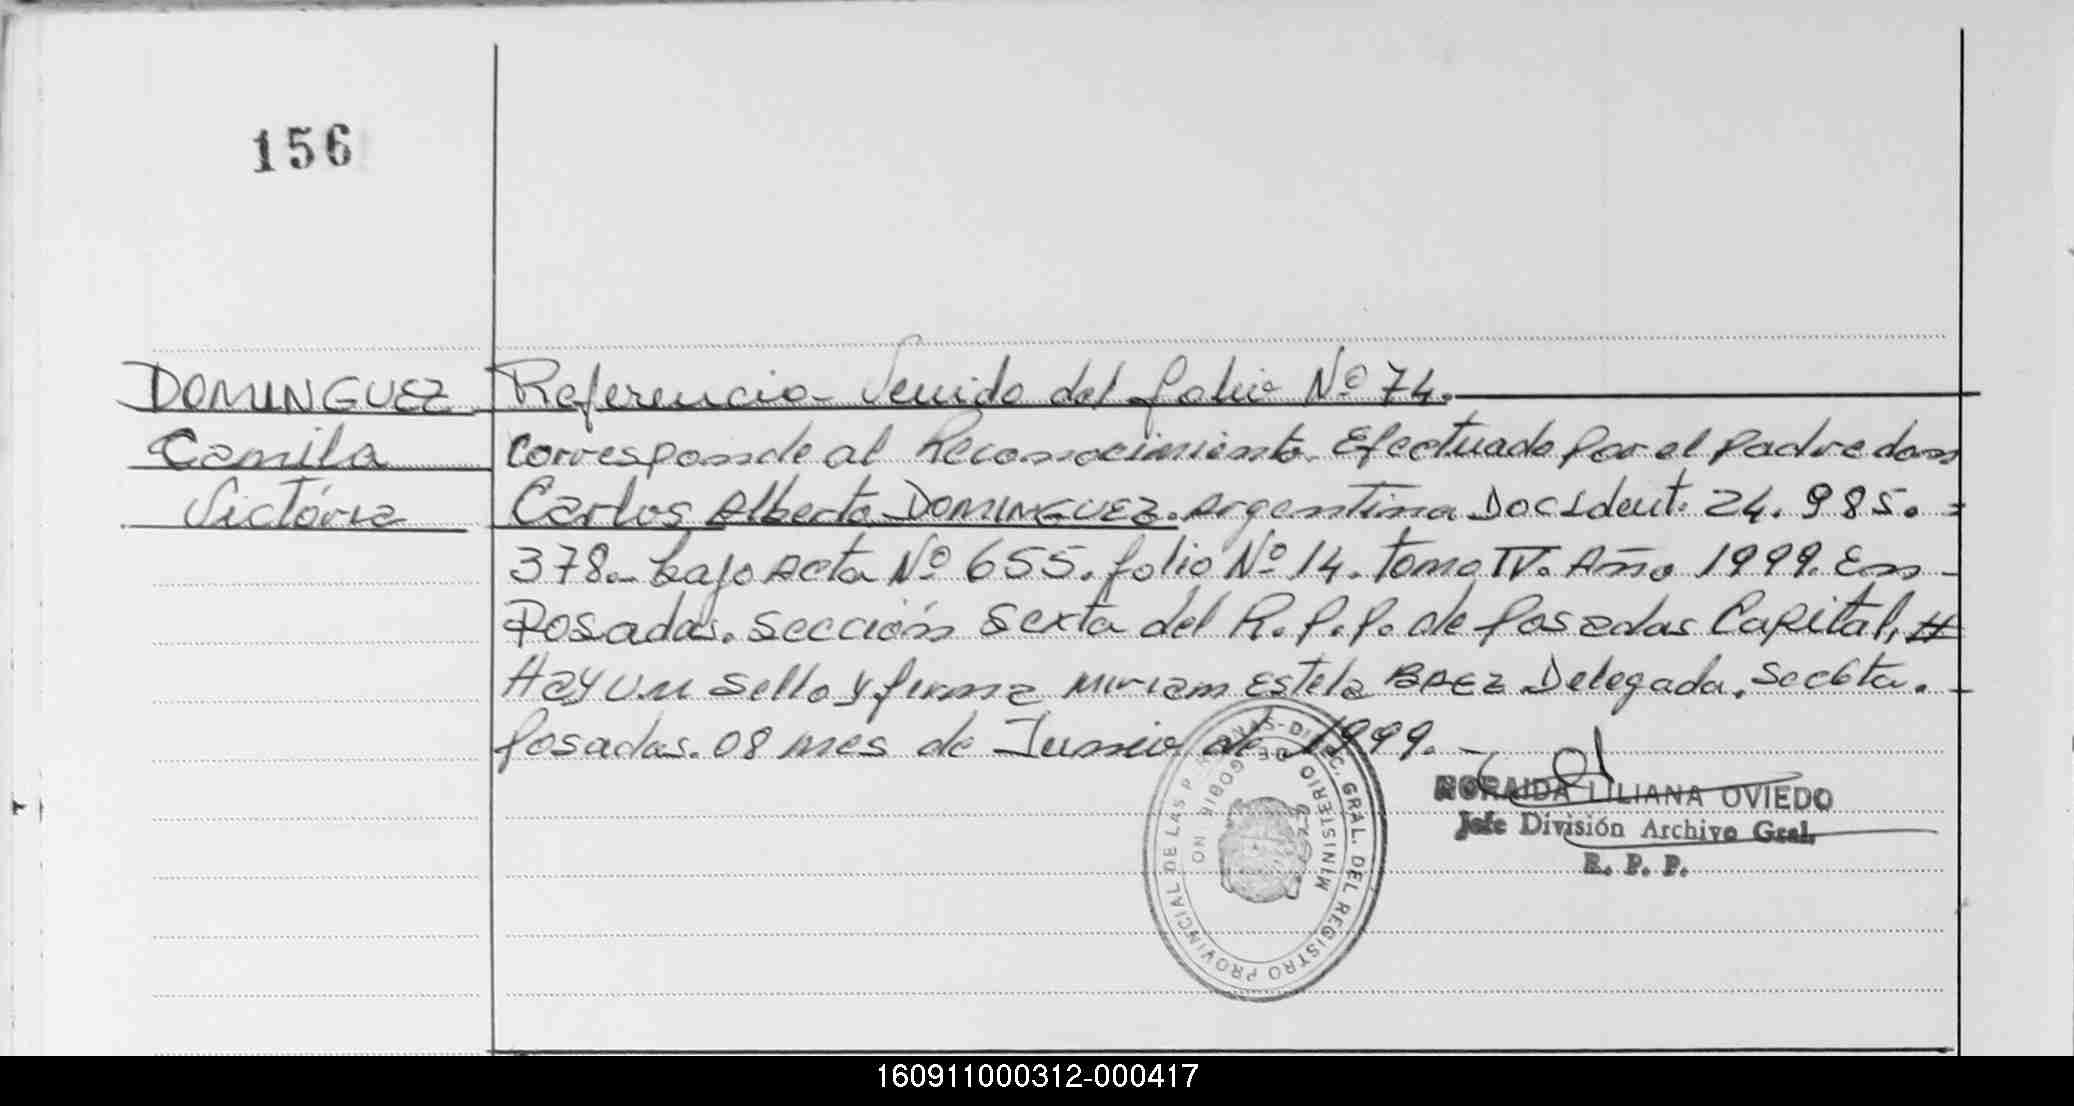 156
DOMINGUEZ
Camila
Victória
Referencia - Venido del folio Nº 74.
Corresponde al Reconocimiento. Efectuado por el padre don
Carlos Alberto DOMINGUEZ. Argentina Doc Ident. 24.985.=
378.- bajo Acta Nº 655. folio Nº 14. tomo IV. Año 1999. En -
Posadas. Sección Sexta del R.P.P. de Posadas Capital, #
Hay un sello y firma Miriam Estela BAEZ Delegada. Sec6ta. -
Posadas. 08 mes de Junio de 1999. -
NORAIDA LILIANA OVIEDO
Jefe División Archivo Gral.
R. P. P.
PROVINCIAL DE LAS P DIREC. GRAL. DEL REGISTRO
MINISTERIO DE GOBIER NO
160911000312-000417